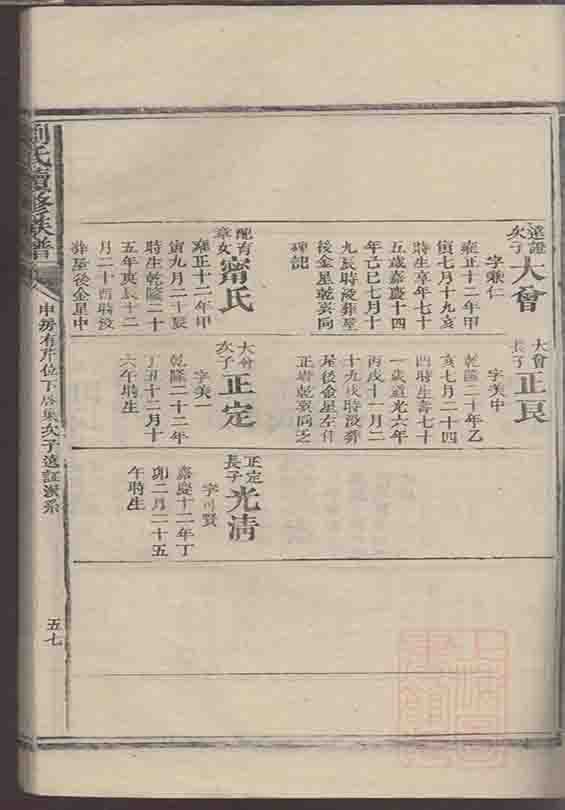 遠證
次子
大會
字兼仁
雍正十二年甲
寅七月十九亥
時生享年七十
五歲嘉慶十四
年己巳七月十
九辰時沒葬屋
後金星乾亥向
碑記
配育
章女
甯氏
雍正十二年甲
寅九月二十辰
時生乾隆二十
五年庚辰十二
月二十酉時沒
葬屋後金星中
大會
長子
正良
字美中
乾隆二十年乙
亥七月二十四
酉時生壽七十
一歲道光六年
丙戌十一月二
十九戌時沒葬
屋後金星左
正 乾亥向
大會
次子
正定
字美一
乾隆二十二年
丁丑十二月十
六午時生
正定
長子
光清
字 賢
嘉慶十二年丁
卯二月二十五
午時生
劉氏續修族譜
申房有芹位下 次子遠証派系
五七